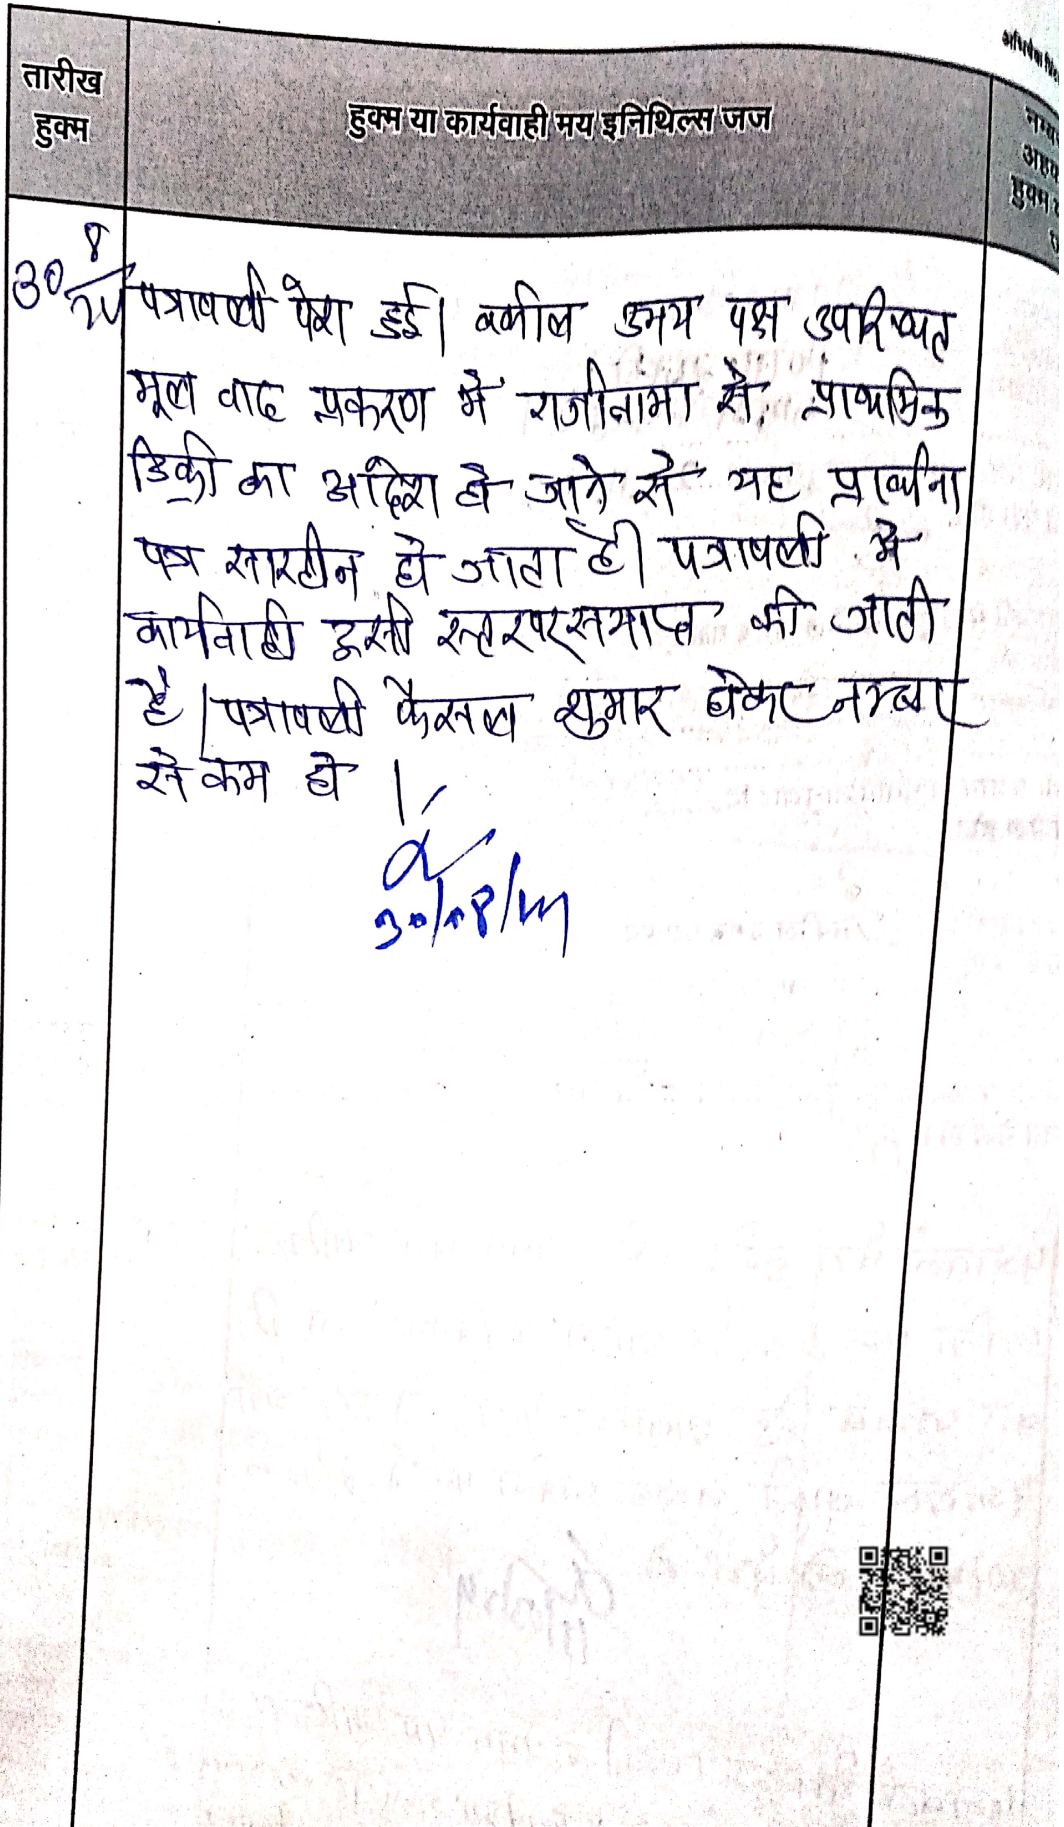 तारीख
हुक्म
हुक्म या कार्यवाही मय इनिथिल्स जज
हुक्म
30 8
पत्रावली पेश हुई। वकील उभय पक्ष उपस्थित
मूल वाद प्रकरण में राजीनामा से प्राथमिक
डिक्री का आदेश हो जाने से यह प्रार्थना
पत्र सारहीन हो जाता है। पत्रावली में
कार्यवाही इसी स्तर पर समाप्त की जाती
है। पत्रावली फैसल शुमार होकर नम्बर
से कम हो।
30/08/